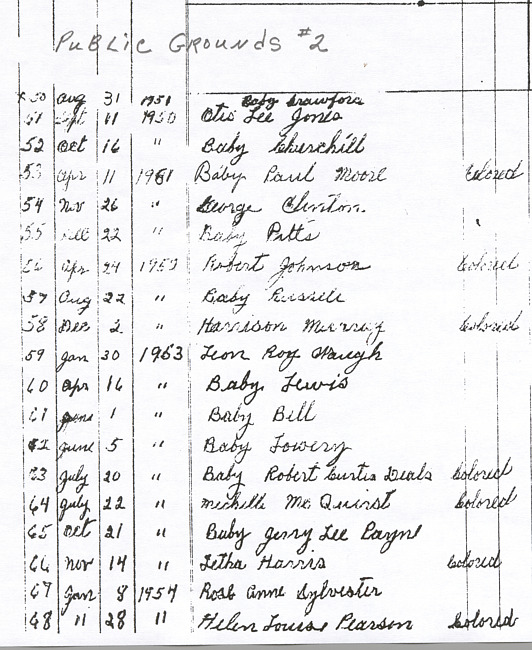 PUBLIC GROUNDS #2
50 Aug 31 1951 Baby Crawford
51 Sept 11 1950 Otis Lee Jones
52 Oct 16 " Baby Churchill
53 Apr 11 1951 Baby Paul Moore Colored
54 Nov 26 " George Clinton
55 22 " Baby Pitts
56 Apr 24 1952 Robert Johnson Colored
57 Aug 22 " Baby Russell
58 Dec 2 " Harrison Murray Colored
59 Jan 30 1953 Leon Roy Waugh
60 Apr 16 " Baby Lewis
61 June 1 " Baby Bill
62 June 5 " Baby Lowery
63 July 20 " Baby Robert Curtis Deals Colored
64 July 22 " Michelle Mc Quirst Colored
65 Oct 21 " Baby Jerry Lee Payne
66 Nov 14 " Letha Harris Colored
67 Jan 8 1954 Rose Anne Sylvester
68 " 28 " Helen Louise Pearson Colored